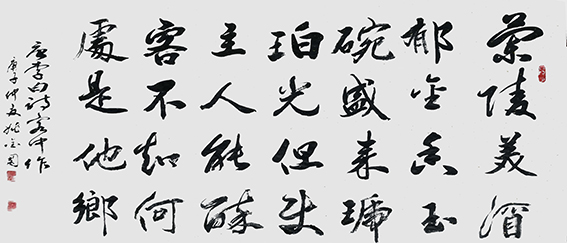 蘭陵美酒
郁金香玉
碗盛来琥
珀光但使
主人能醉
客不知何
處是他鄉
李白诗客中作
庚子仲夏